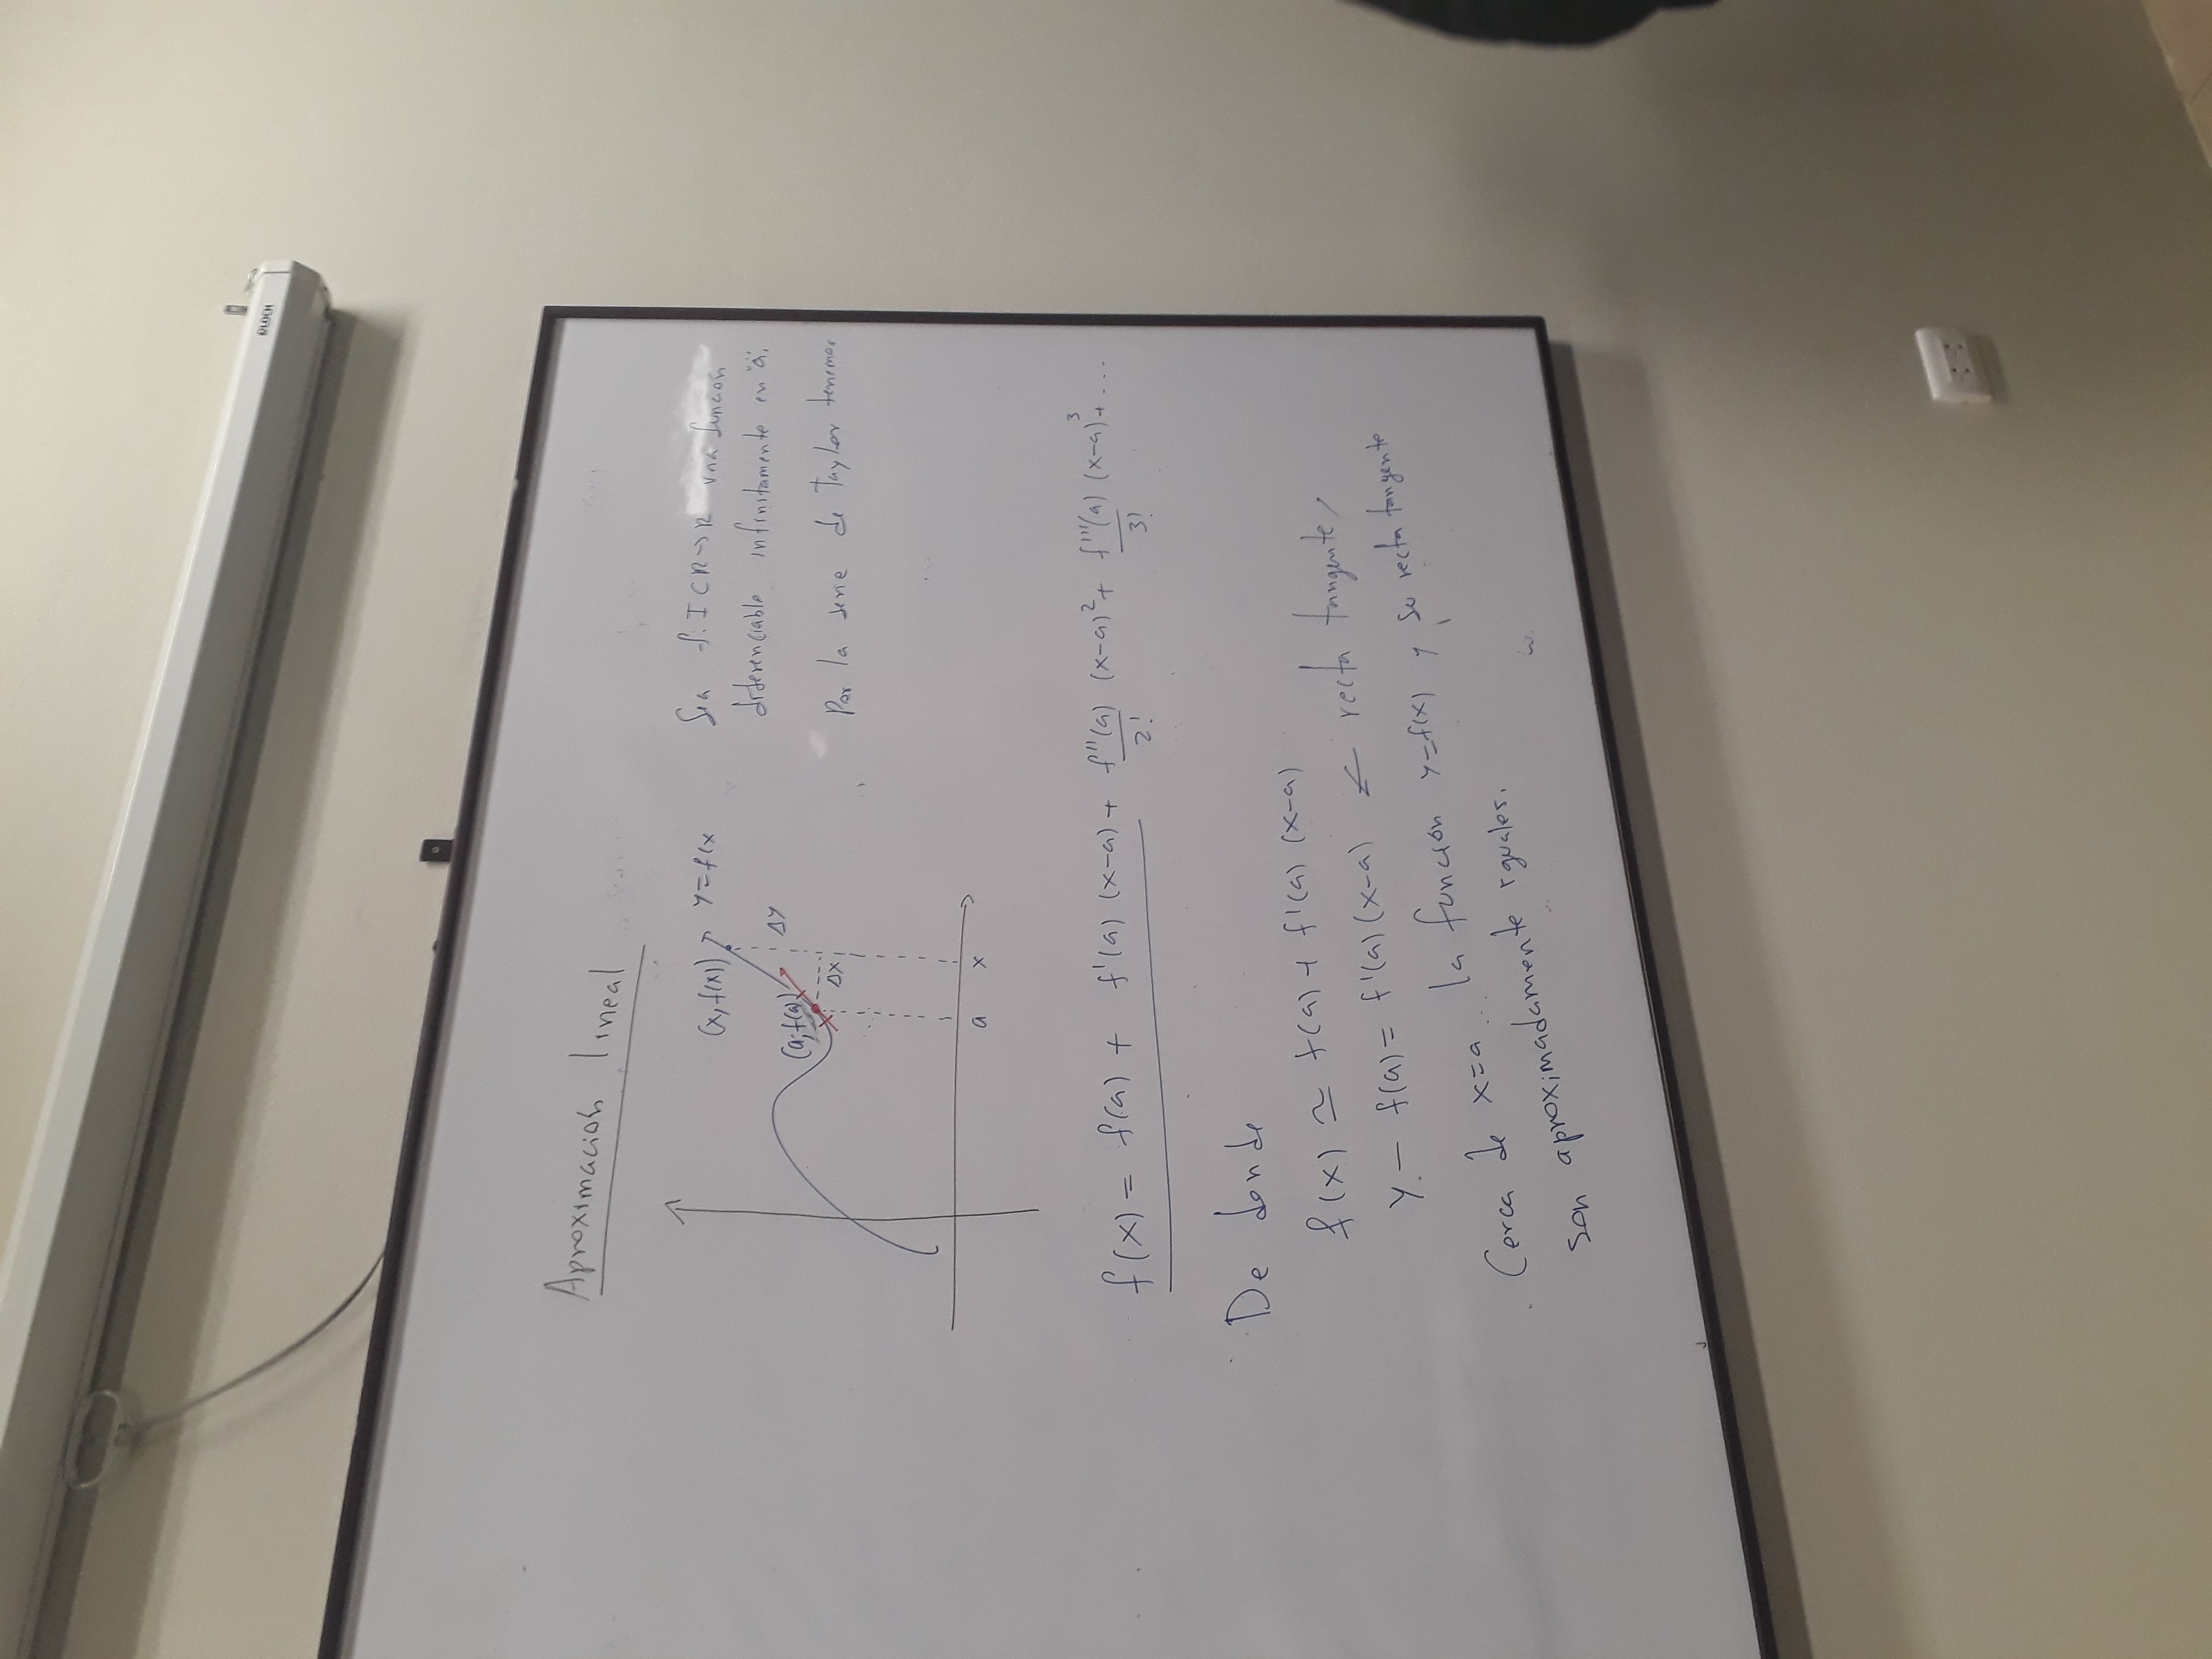 BLOCH
Aproximación lineal
(x, f(x))
y=f(x
Δy
(a; f(a))
Δx
a
x
Sea f: I ⊂ R → R una función
diferenciable infinitamente en "a".
Por la serie de Taylor tenemos
f(x) = f(a) + f'(a) (x-a) + f''(a)/2! (x-a)² + f'''(a)/3! (x-a)³ + ...
De donde
f(x) ≃ f(a) + f'(a) (x-a)
y - f(a) = f'(a) (x-a) ← recta tangente
Cerca de x=a la función y=f(x) y su recta tangente
son aproximadamente iguales.